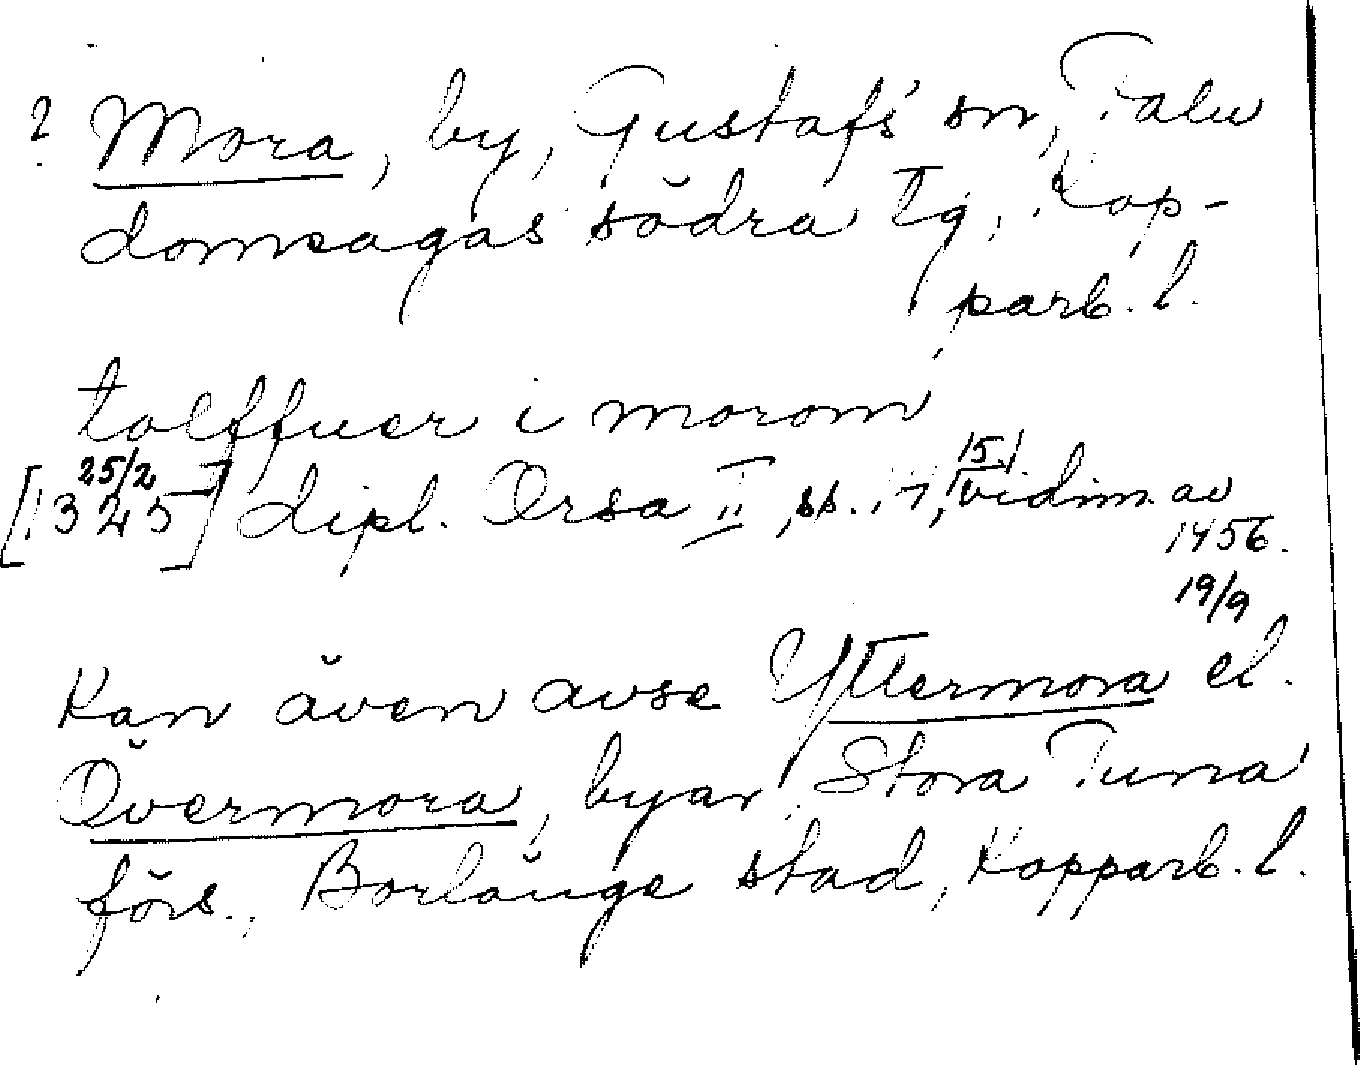 ? Mora, by, Gustafs' sn, Falu
domsagas södra tg, Kop-
parb. l.
tolffuer i morom
[1345] dipl. Orsa II, ss. 17, vidim. av
25/2 15/1
1456.
19/9
Kan även avse Yttermora el.
Övermora, byar, Stora Tuna
förs., Borlänge stad, Kopparb. l.